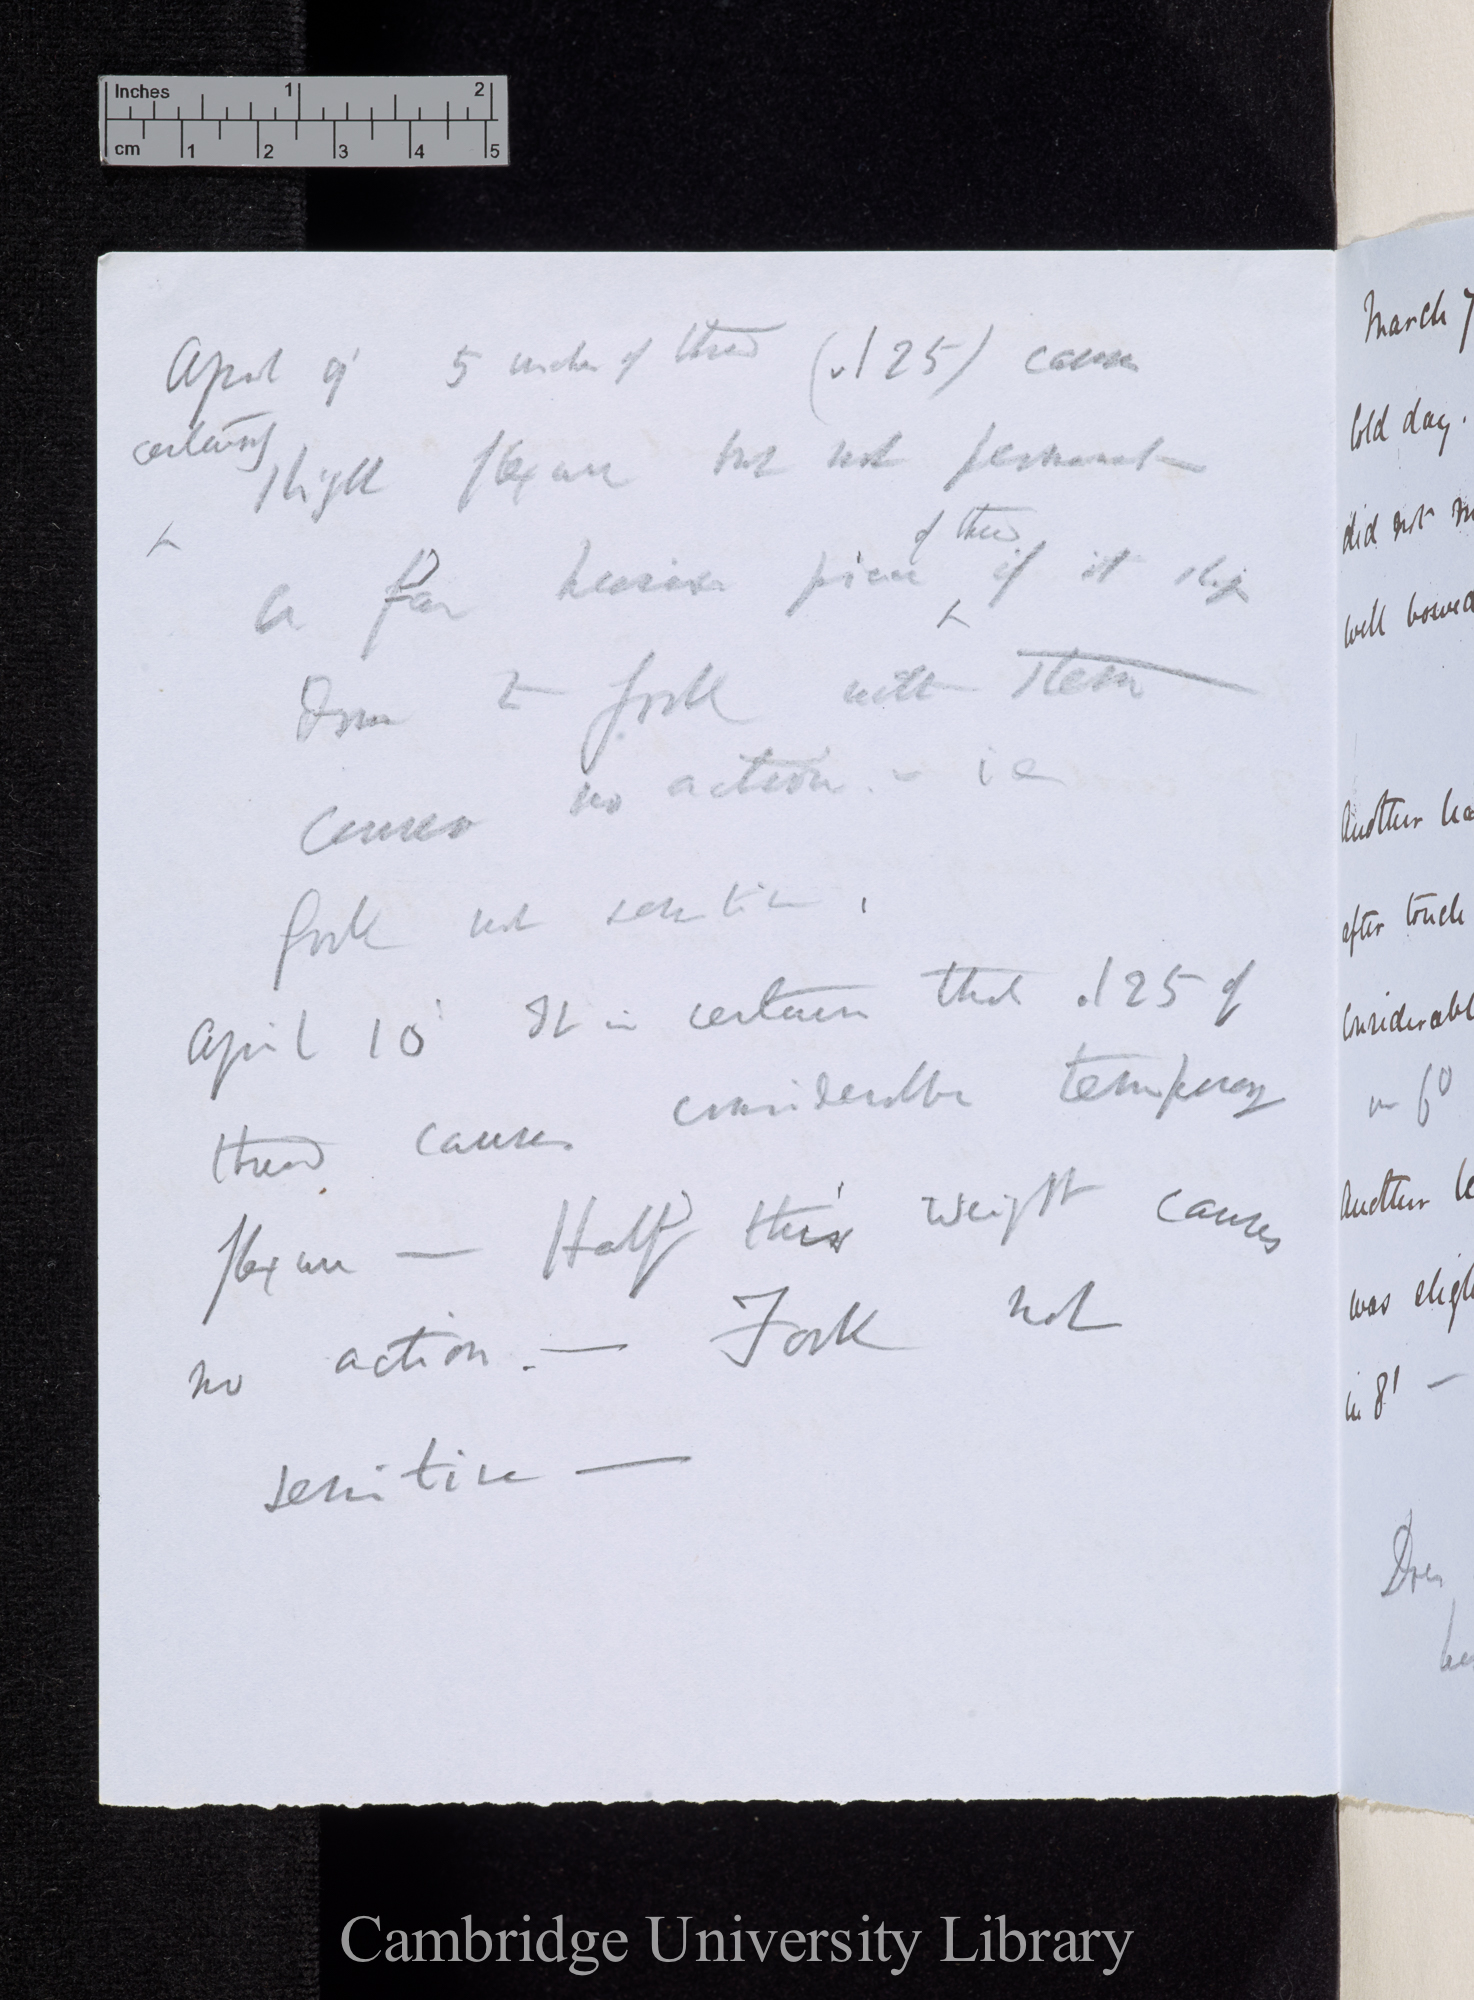 Inches 1 2
cm 1 2 3 4 5
April 9' 5 inches of thread (.125) causes
certainly
slight flexure but not permanent
of thread
a far heavier piece if it slips
down to fork with stem
causes no action. – i e
fork not sensitive.
April 10' It is certain that .125 of
thread causes considerable temporary
flexure — Half this weight causes
no action. — Fork not
sensitive —
March 7
Cold day.
did not m
well bowed
Another le
after touch
considerabl
in 6°
Another le
was sligh
in 8' —
Cambridge University Library